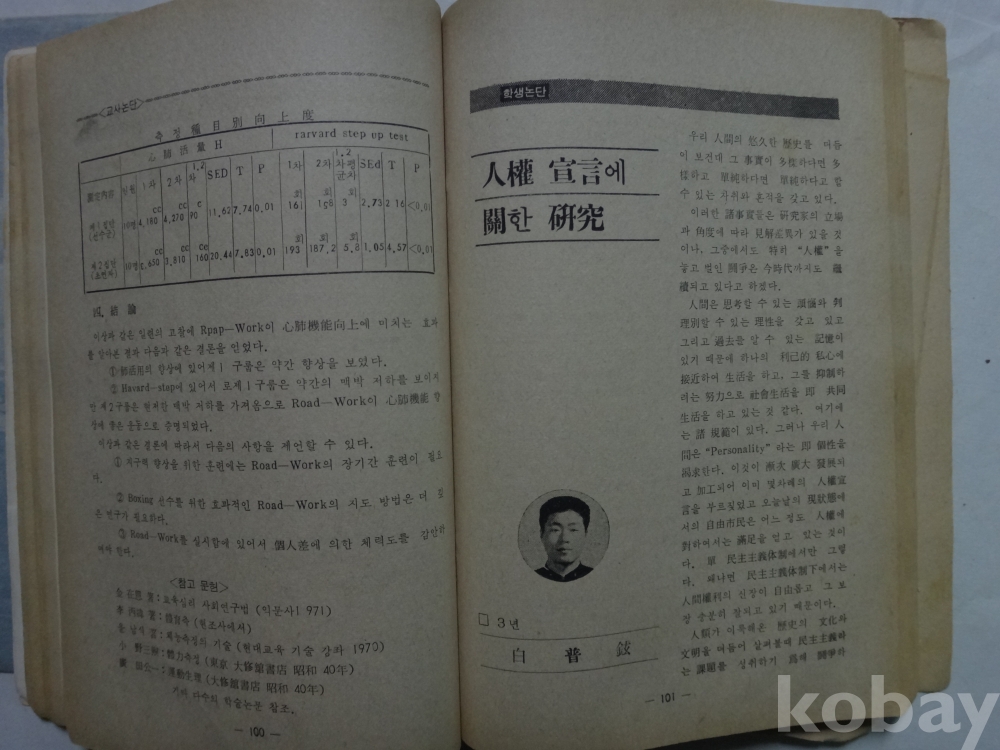 <교사논단>
측정種目別向上度
心肺活量 H rarvard step up test
測定內容 인원 1차 2차 1.2차 SED T P 1차 2차 1.2차평균차 SEd T P
제1집단 (선수군) 10명 cc 4,180 cc 4,270 c 90 11.62 7.74 0.01 회 161 회 158 회 3 2.73 2 16 <0.01
제2집단 10명 cc .650 cc 3,810 cc 160 20.44 7.83 0.01 회 193 회 187.2 회 5.8 1.05 4.57 <0.01
Ⅳ. 結論
이상과 같은 일련의 고찰에 Rpap—Work이 心肺機能向上에 미치는 효과
를 알아본 결과 다음과 같은 결론을 얻었다.
① 肺活用의 향상에 있어 제1구룹은 약간 향상을 보였다.
② Havard—step에 있어서 로제1구룹은 약간의 맥박 저하를 보이지
만 제2구룹은 현저한 맥박 저하를 가져옴으로 Road—Work이 心肺機能 향
상에 좋은 운동으로 증명되었다.
이상과 같은 결론에 따라서 다음의 사항을 제언할 수 있다.
① 지구력 향상을 위한 훈련에는 Road—Work의 장기간 훈련이 필요
다.
② Boxing 선수를 위한 효과적인 Road—Work의 지도 방법은 더 많
은 연구가 필요하다.
③ Road—Work를 실시함에 있어서 個人差에 의한 체력도를 감안하
여야 한다.
<참고 문헌>
교육심리 사회연구법 (익문사1971)
李 丙 (원조사에서)
체능측정의 기술 (현대교육 기술 강좌 1970)
小野三 : 體力측정 (東京 大修館書店 昭和 40年)
運動生理 (大修館書店 昭和 40年)
기타 다수의 학술논문 참조.
— 100 —
학생논단
人權 宣言에
關한 硏究
□ 3년
白 普 鉉
우리 人間의 悠久한 歷史를 더듬
어 보건대 그 事實이 多樣하다면 多
樣하고 單純하다면 單純하다고 할
수 있는 자취와 흔적을 갖고 있다.
이러한 諸事實들은 硏究家의 立場
과 角度에 따라 見解差異가 있을 것
이나, 그중에서도 特히 “人權”을
놓고 벌인 鬪爭은 今時代까지도 繼
續되고 있다고 하겠다.
人間은 思考할 수 있는 頭腦와 判
理別할 수 있는 理性을 갖고 있고
그리고 過去를 알 수 있는 記憶이
있기 때문에 하나의 利己的 私心에
接近하여 生活을 하고, 그를 抑制하
려는 努力으로 社會生活을 即 共同
生活을 하고 있는 것 같다. 여기에
는 諸 規範이 있다. 그러나 우리 人
間은 “Personality” 라는 即 個性을
渴求한다. 이것이 漸次 廣大 發展되
고 加工되어 이미 몇차례의 人權宣
言을 부르짖었고 오늘날의 現狀態에
서의 自由市民은 어느 정도 人權에
對하여서는 滿足을 얻고 있는 것이
다. 單 民主主義体制에서만 그렇
다. 왜냐면 民主主義体制下에서는
人間權利의 신장이 自由롭고 그 보
장 충분히 잘되고 있기 때문이다.
人類가 이룩해온 歷史의 文化와
文明을 더듬어 살펴볼때 民主主義라
는 課題를 성취하기 爲해 鬪爭하
— 101 —
kobay